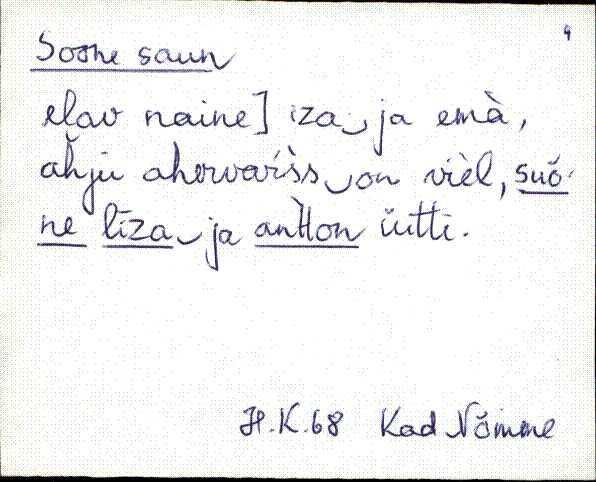 9
Soone saun
elav naine] iza‿ja emà,
ahju ahervarìss‿on vièl, suõ-
ne līza‿ja antton ǖtti.
H.K.68 Kad Nõmme